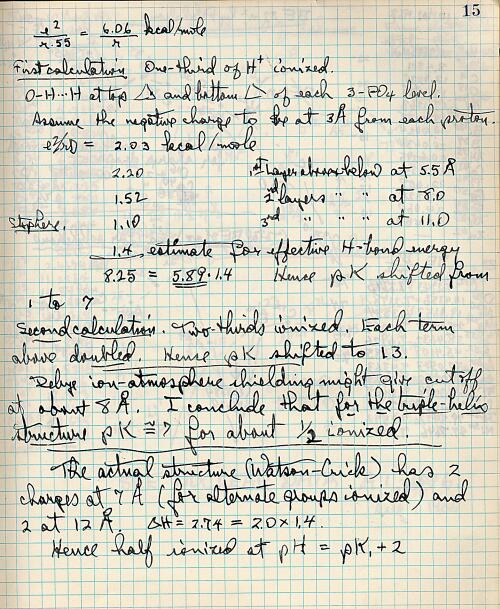 15
e²/r·55 = 6.06/r kcal/mole
First calculation. One-third of H⁺ ionized.
O-H···H at top and bottom of each 3-PO4 level.
Assume the negative charge to be at 3Å from each proton.
e²/rD = 2.03 kcal/mole
2.20 1st layer above & below at 5.5 Å
1.52 2nd layers " " at 8.0
1.10 3rd " " at 11.0
1.4 estimate for effective H-bond energy
8.25 = 5.89·1.4 Hence pK shifted from
1 to 7
Second calculation. Two-thirds ionized. Each term
above doubled. Hence pK shifted to 13.
Debye ion-atmosphere shielding might give cutoff
at about 8 Å. I conclude that for the triple-helix
structure pK ≅ 7 for about 1/2 ionized.
The actual structure (Watson-Crick) has 2
charges at 7 Å (for alternate groups ionized) and
2 at 12 Å. ΔH = 2.74 = 2.0 × 1.4.
Hence half ionized at pH = pK₁ + 2